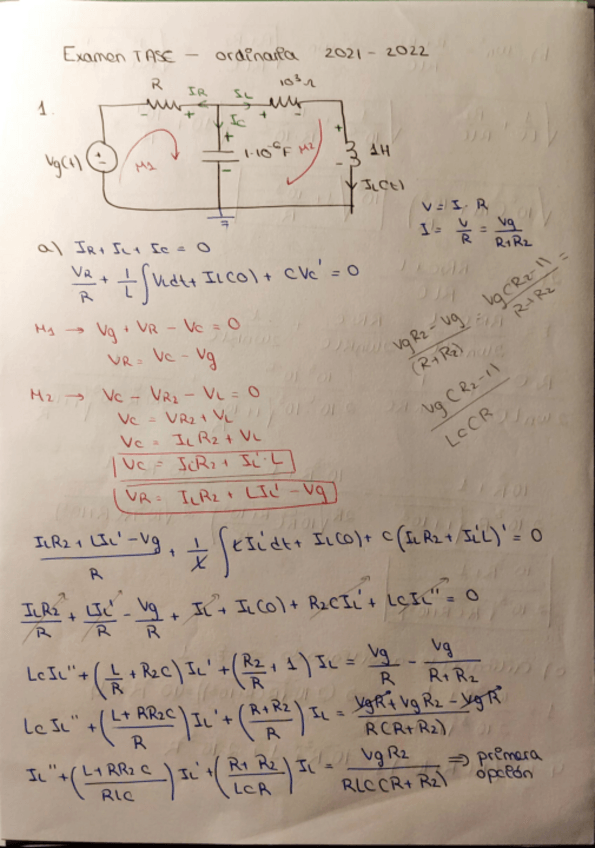 Examen TASC - ordinaria 2021-2022
1.
R IR IL 10³Ω
IC
Vg(t) M1 1·10⁻⁶F M2 1H
IL(t)
V = I · R
I = V/R = Vg/(R+R2)
a) IR + IL + IC = 0
VR/R + 1/L ∫VLdt + IL(0) + CVc' = 0
M1 → Vg + VR - Vc = 0
VR = Vc - Vg
(VgR2 - Vg)/(R+R2) Vg(R2-1)/(R+R2) =
Vg(R2-1)/LCCR
M2 → Vc - VR2 - VL = 0
Vc = VR2 + VL
Vc = ILR2 + VL
Vc = ILR2 + IL'·L
VR = ILR2 + LIL' - Vg
(ILR2 + LIL' - Vg)/R + 1/L ∫LIL'dt + IL(0) + C(ILR2 + IL'L)' = 0
ILR2/R + LIL'/R - Vg/R + IL + IL(0) + R2CIL' + LCIL'' = 0
LCIL'' + (L/R + R2C) IL' + (R2/R + 1) IL = Vg/R - Vg/(R+R2)
LCIL'' + ((L+RR2C)/R) IL' + ((R+R2)/R) IL = (VgR + VgR2 - VgR)/(R(R+R2))
IL'' + ((L+RR2C)/RLC) IL' + ((R+R2)/LCR) IL = VgR2/(RLC(R+R2)) ⇒ primera opción